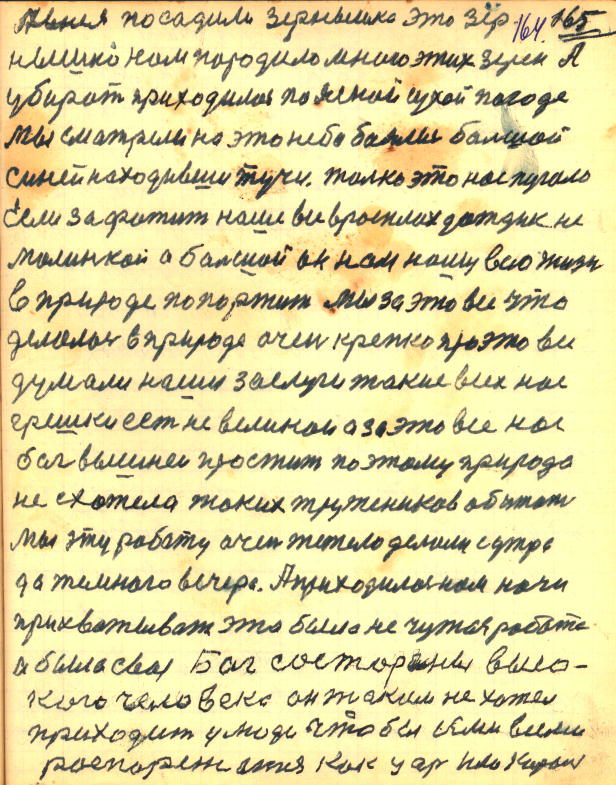 посадили зернышка это зер 164. 165
нышко нам породило много этих зерен А
убират приходилос по ясной сухой погоде
мы сматрели на это небо балшой
синей находивши тучи. толко это нас пугало
если захватит наше все врасплох дождик не
малинкой а балшой он нам нашу всю жизн
в природе попортит мы за это все что
делалос в природе очен крепко про это все
думали наши заслуги такие всех нас
грешки ест не великаи а за это все нас
бог вышней простит поэтому природа
не схотела таких тружеников обижат
мы эту работу очен тежело делали с утра
да темного вечера. А приходилос нам ночи
прихватыват эта была не чужая работа
а была своя Бог состороны высо-
кого человека он таким не хотел
приходит у люди чтобы семи всеми
распоряжатся как у